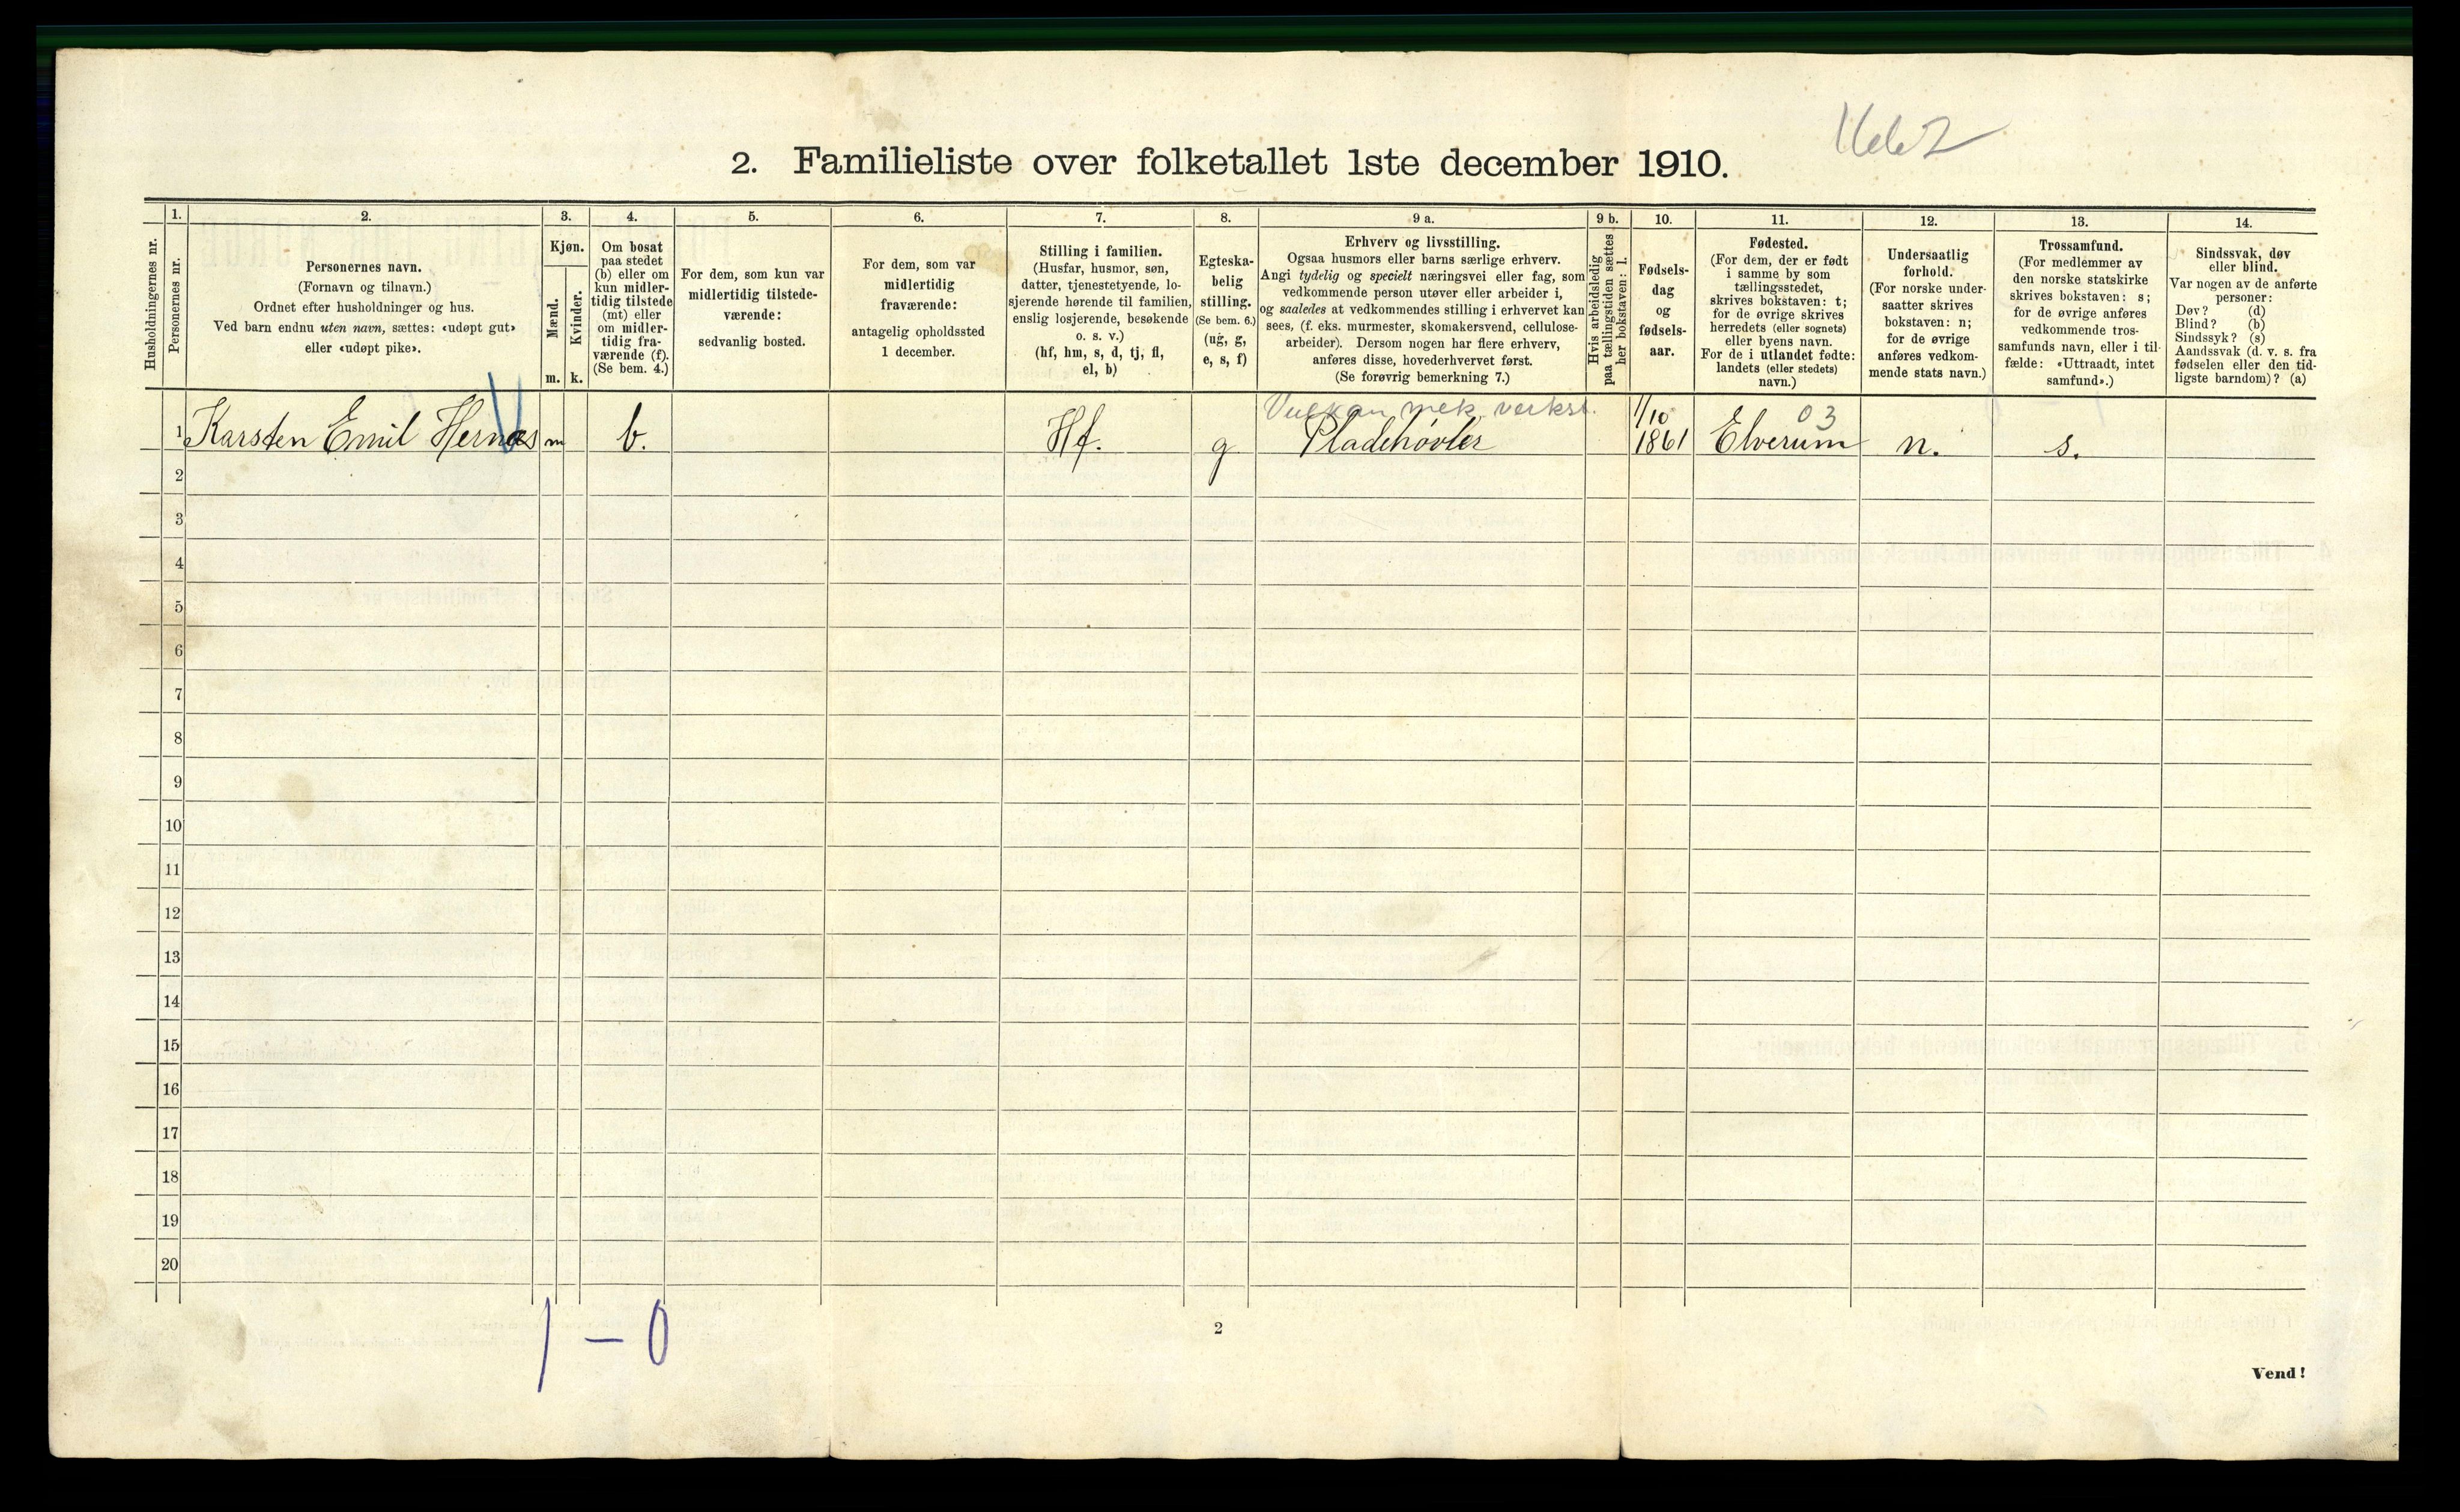 2. Familieliste over folketallet 1ste december 1910.
1. 2. 3. 4. 5. 6. 7. 8. 9 a. 9 b. 10. 11. 12. 13. 14.
Husholdningernes nr.
Personernes nr.
Personernes navn.
(Fornavn og tilnavn.)
Ordnet efter husholdninger og hus.
Ved barn endnu uten navn, sættes: «udøpt gut»
eller «udøpt pike».
Kjøn.
Mænd.
Kvinder.
m. k.
Om bosat
paa stedet
(b) eller om
kun midler-
tidig tilstede
(mt) eller
om midler-
tidig fra-
værende (f).
(Se bem. 4.)
For dem, som kun var
midlertidig tilstede-
værende:
sedvanlig bosted.
For dem, som var
midlertidig
fraværende:
antagelig opholdssted
1 december.
Stilling i familien.
(Husfar, husmor, søn,
datter, tjenestetyende, lo-
sjerende hørende til familien,
enslig losjerende, besøkende
o. s. v.)
(hf, hm, s, d, tj, fl,
el, b)
Egteska-
belig
stilling.
(Se bem. 6.)
(ug, g,
e, s, f)
Erhverv og livsstilling.
Ogsaa husmors eller barns særlige erhverv.
Angi tydelig og specielt næringsvei eller fag, som
vedkommende person utøver eller arbeider i,
og saaledes at vedkommendes stilling i erhvervet kan
sees, (f. eks. murmester, skomakersvend, cellulose-
arbeider). Dersom nogen har flere erhverv,
anføres disse, hovederhvervet først.
(Se forøvrig bemerkning 7.)
Hvis arbeidsledig
paa tællingstiden sættes
her bokstaven: l.
Fødsels-
dag
og
fødsels-
aar.
Fødested.
(For dem, der er født
i samme by som
tællingsstedet,
skrives bokstaven: t;
for de øvrige skrives
herredets (eller sognets)
eller byens navn.
For de i utlandet fødte:
landets (eller stedets)
navn.)
Undersaatlig
forhold.
(For norske under-
saatter skrives
bokstaven: n;
for de øvrige
anføres vedkom-
mende stats navn.)
Trossamfund.
(For medlemmer av
den norske statskirke
skrives bokstaven: s;
for de øvrige anføres
vedkommende tros-
samfunds navn, eller i til-
fælde: «Uttraadt, intet
samfund».)
Sindssvak, døv
eller blind.
Var nogen av de anførte
personer:
Døv? (d)
Blind? (b)
Sindssyk? (s)
Aandssvak (d. v. s. fra
fødselen eller den tid-
ligste barndom)? (a)
Vulkan mek. verkst. 1/10 03
1 Karsten Emil Hernæs m b. Hf. g Pladehøvler 1861 Elverum n. s.
2
3
4
5
6
7
8
9
10
11
12
13
14
15
16
17
18
19
20
1 – 0
2
Vend!